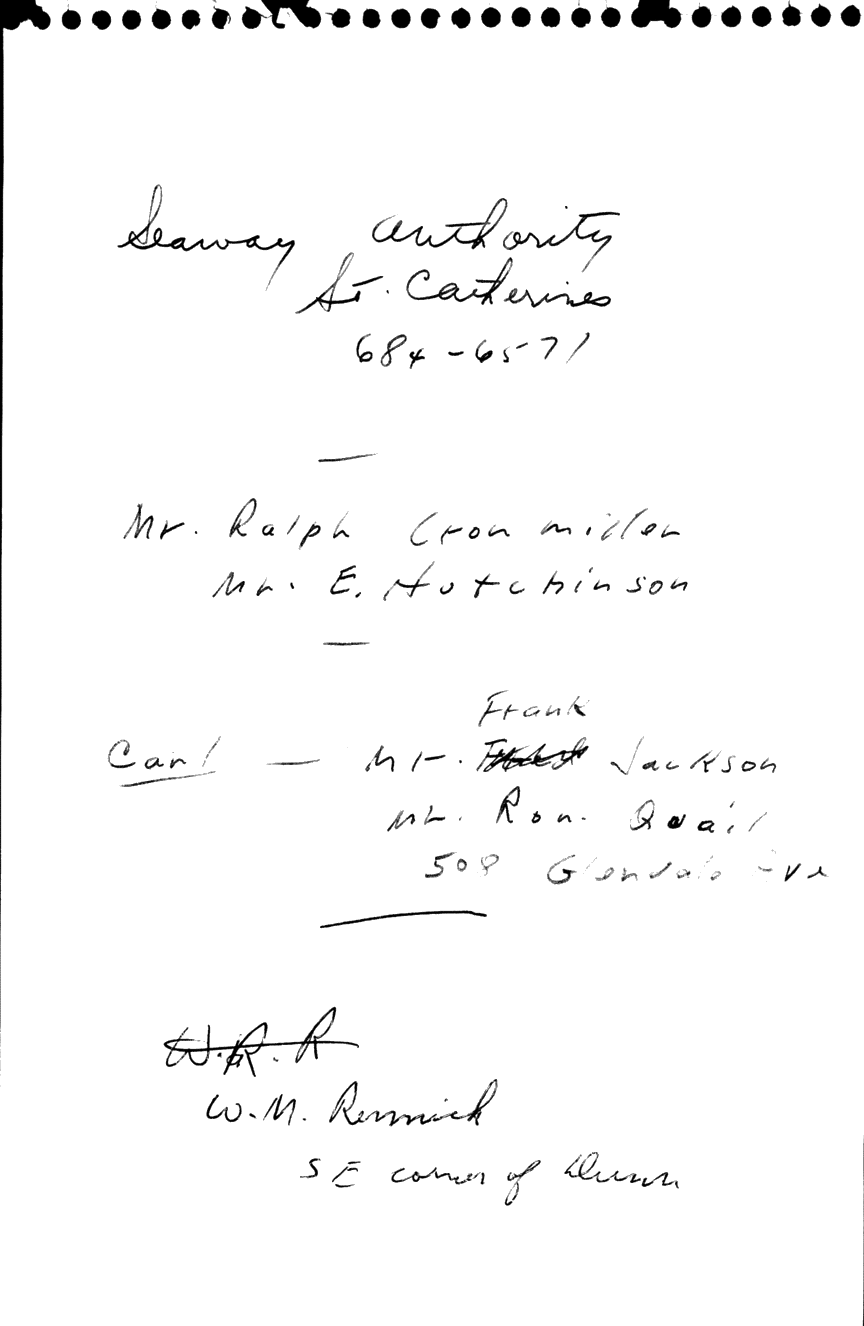 Seaway Authority
St. Catherines
684-6571
—
Mr. Ralph Cronmiller
Mr. E. Hutchinson
—
Frank
Carl — Mr. Jackson
Mr. Ron. Quail
508 Glendale Ave
W.R.R
W.M. Rennick
SE corner of Dunn